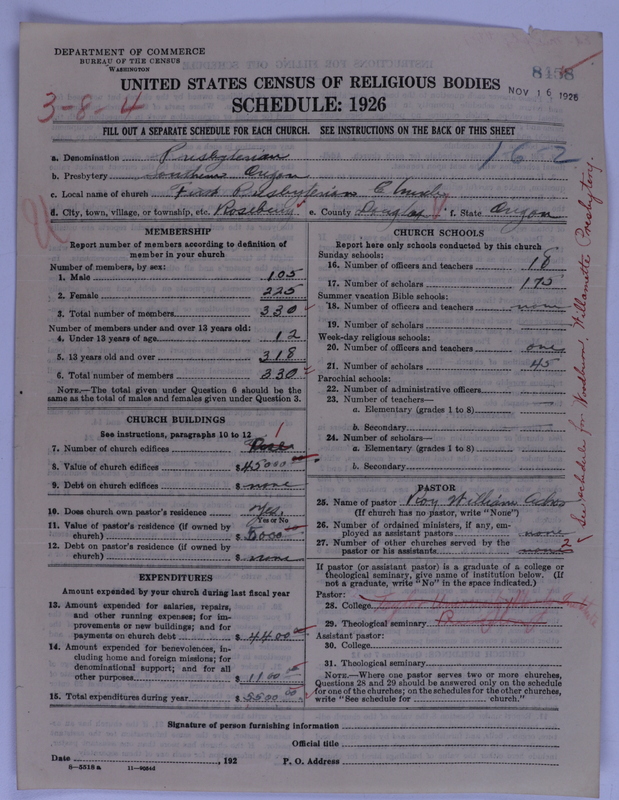 DEPARTMENT OF COMMERCE
BUREAU OF THE CENSUS
WASHINGTON
8158
NOV 16 1926
UNITED STATES CENSUS OF RELIGIOUS BODIES
3-8-4
SCHEDULE: 1926
FILL OUT A SEPARATE SCHEDULE FOR EACH CHURCH. SEE INSTRUCTIONS ON THE BACK OF THIS SHEET
a. Denomination Presbyterian
16-2
b. Presbytery Southern Oregon
c. Local name of church First Presbyterian Church
d. City, town, village, or township, etc. Roseburg e. County Douglas f. State Oregon
MEMBERSHIP
Report number of members according to definition of
member in your church
Number of members, by sex:
1. Male 105
2. Female 225
3. Total number of members 330
Number of members under and over 13 years old:
4. Under 13 years of age 12
5. 13 years old and over 318
6. Total number of members 330
NOTE.—The total given under Question 6 should be the
same as the total of males and females given under Question 3.
CHURCH BUILDINGS
See instructions, paragraphs 10 to 12
7. Number of church edifices 1
8. Value of church edifices $ 45000
9. Debt on church edifices $ none
10. Does church own pastor's residence Yes.
Yes or No
11. Value of pastor's residence (if owned by
church) $ 5000
12. Debt on pastor's residence (if owned by
church) $ none
EXPENDITURES
Amount expended by your church during last fiscal year
13. Amount expended for salaries, repairs,
and other running expenses; for im-
provements or new buildings; and for
payments on church debt $ 4400 00
14. Amount expended for benevolences, in-
cluding home and foreign missions; for
denominational support; and for all
other purposes $ 1100 00
15. Total expenditures during year $ 5500 00
CHURCH SCHOOLS
Report here only schools conducted by this church
Sunday schools:
16. Number of officers and teachers 18
17. Number of scholars 175
Summer vacation Bible schools:
18. Number of officers and teachers none
19. Number of scholars
Week-day religious schools:
20. Number of officers and teachers one
21. Number of scholars 45
Parochial schools:
22. Number of administrative officers
23. Number of teachers—
a. Elementary (grades 1 to 8)
b. Secondary
24. Number of scholars—
a. Elementary (grades 1 to 8)
b. Secondary
PASTOR
25. Name of pastor Roy William
(If church has no pastor, write "None")
26. Number of ordained ministers, if any, em-
ployed as assistant pastors none
27. Number of other churches served by the
pastor or his assistants 2
If pastor (or assistant pastor) is a graduate of a college or
theological seminary, give name of institution below. (If
not a graduate, write "No" in the space indicated.)
Pastor:
28. College
29. Theological seminary
Assistant pastor:
30. College
31. Theological seminary
NOTE.—Where one pastor serves two or more churches,
Questions 28 and 29 should be answered only on the schedule
for one of the churches; on the schedules for the other churches,
write "See schedule for church."
See schedule for Woodburn, Willamette Presbytery.
Signature of person furnishing information
Official title
Date , 192 P. O. Address
8—5518 a 11—9054d